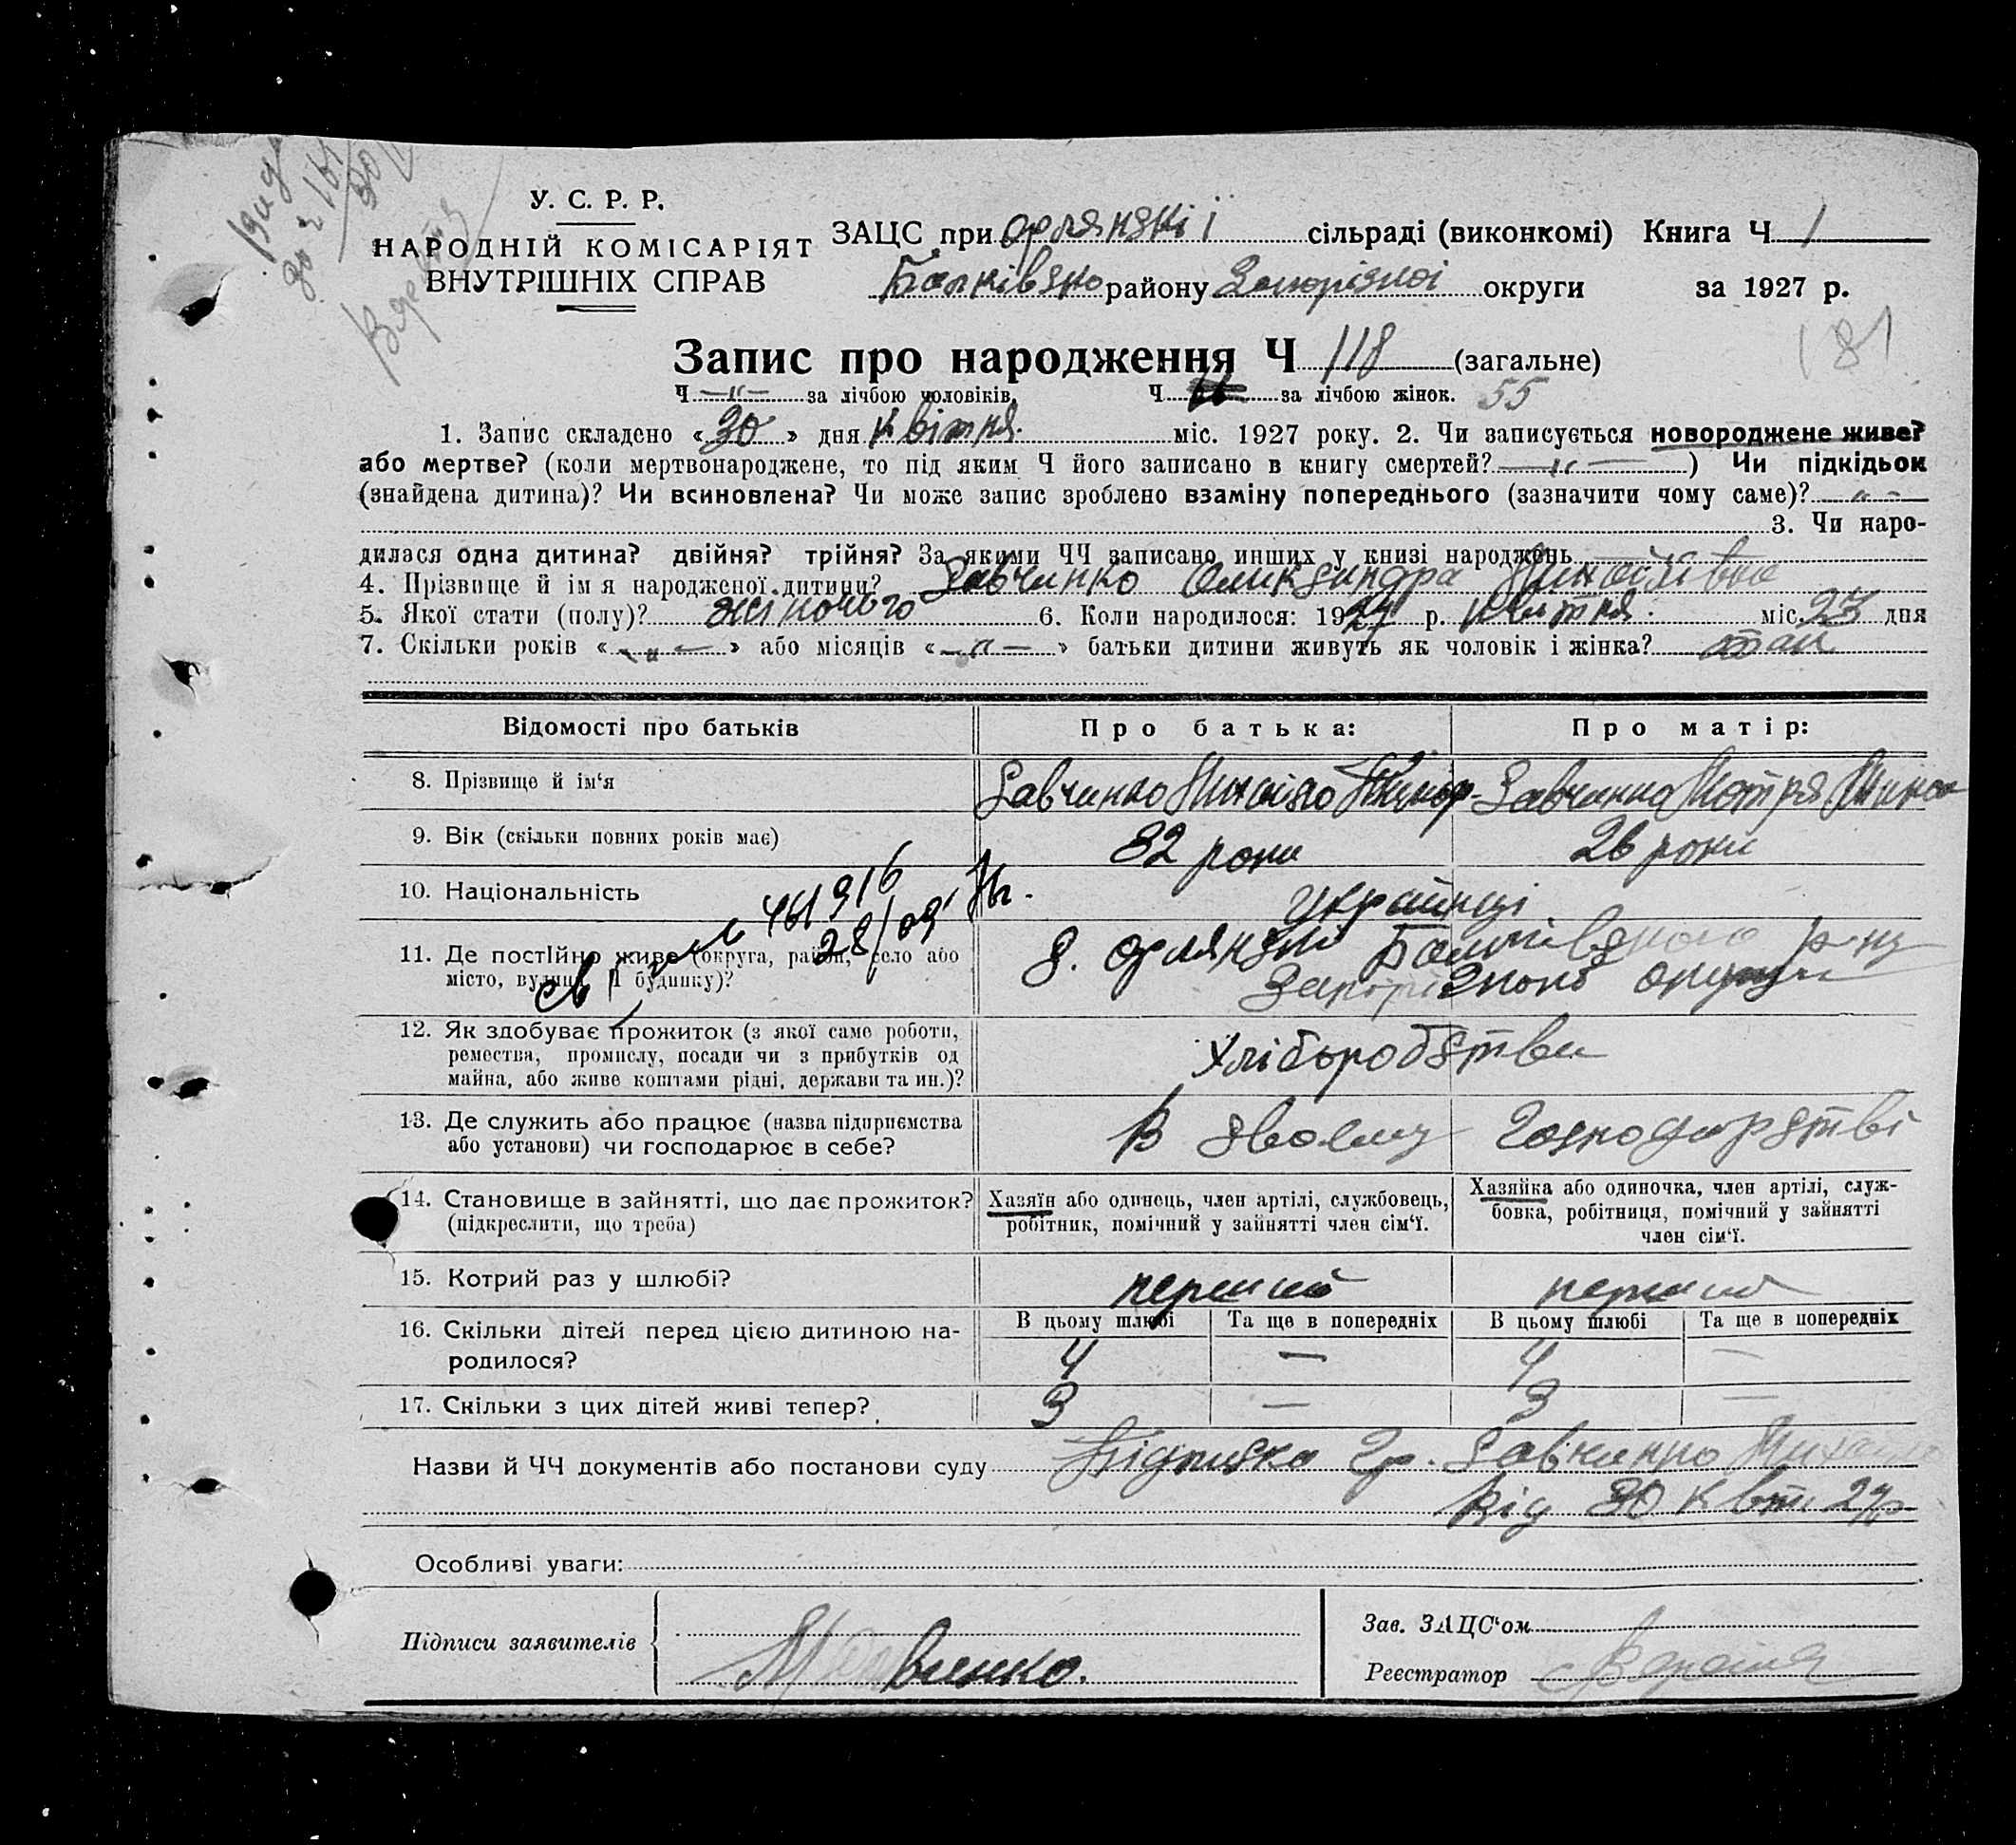 У. С. Р. Р.
НАРОДНІЙ КОМІСАРІЯТ
ВНУТРІШНІХ СПРАВ
ЗАЦС при Орлянські і сільраді (виконкомі) Книга Ч 1
району Запорізької округи за 1927 р.
181
Запис про народження Ч 118 (загальне)
Ч — " — за лічбою чоловіків. Ч за лічбою жінок. 55
1. Запис складено « 30 » дня квітня міс. 1927 року. 2. Чи записується новороджене живе?
або мертве? (коли мертвонароджене, то під яким Ч його записано в книгу смертей? — " — ) Чи підкідьок
(знайдена дитина)? Чи всиновлена? Чи може запис зроблено взаміну попереднього (зазначити чому саме)? — " —
3. Чи наро-
дилася одна дитина? двійня? трійня? За якими ЧЧ записано инших у книзі народжень
4. Прізвище й ім я народженої дитини? Савченко Олександра Михайлівна
5. Якої стати (полу)? жіночого 6. Коли народилося: 1927 р. квітня міс. 23 дня
7. Скільки років « — " — » або місяців « — " — » батьки дитини живуть як чоловік і жінка?
Відомості про батьків Про батька: Про матір:
8. Прізвище й ім‘я Савченко Михайло Савченко Мотря
9. Вік (скільки повних років має) 32 роки 26 роки
10. Національність українці
461916
28/
11. Де постійно живе (округа, район, село або
місто, вулиця, Ч будинку)? с. Орлянські
12. Як здобуває прожиток (з якої саме роботи,
ремества, промислу, посади чи з прибутків од
майна, або живе коштами рідні, держави та ин.)? Хліборобство
13. Де служить або працює (назва підприємства
або установи) чи господарює в себе? В своєму господарстві
14. Становище в зайнятті, що дає прожиток?
(підкреслити, що треба)
Хазяїн або одинець, член артілі, службовець,
робітник, помічний у зайнятті член сім‘ї.
Хазяйка або одиночка, член артілі, служ-
бовка, робітниця, помічний у зайнятті
член сім‘ї.
15. Котрий раз у шлюбі? перший перший
16. Скільки дітей перед цією дитиною на-
родилося?
В цьому шлюбі Та ще в попередніх В цьому шлюбі Та ще в попередніх
4 — 4 —
17. Скільки з цих дітей живі тепер? 3 — 3 —
Назви й ЧЧ документів або постанови суду Підписка гр. Савченко
від 30 квіт. 27 р
Особливі уваги:
Підписи заявителів
Зав. ЗАЦС‘ом
Реєстратор